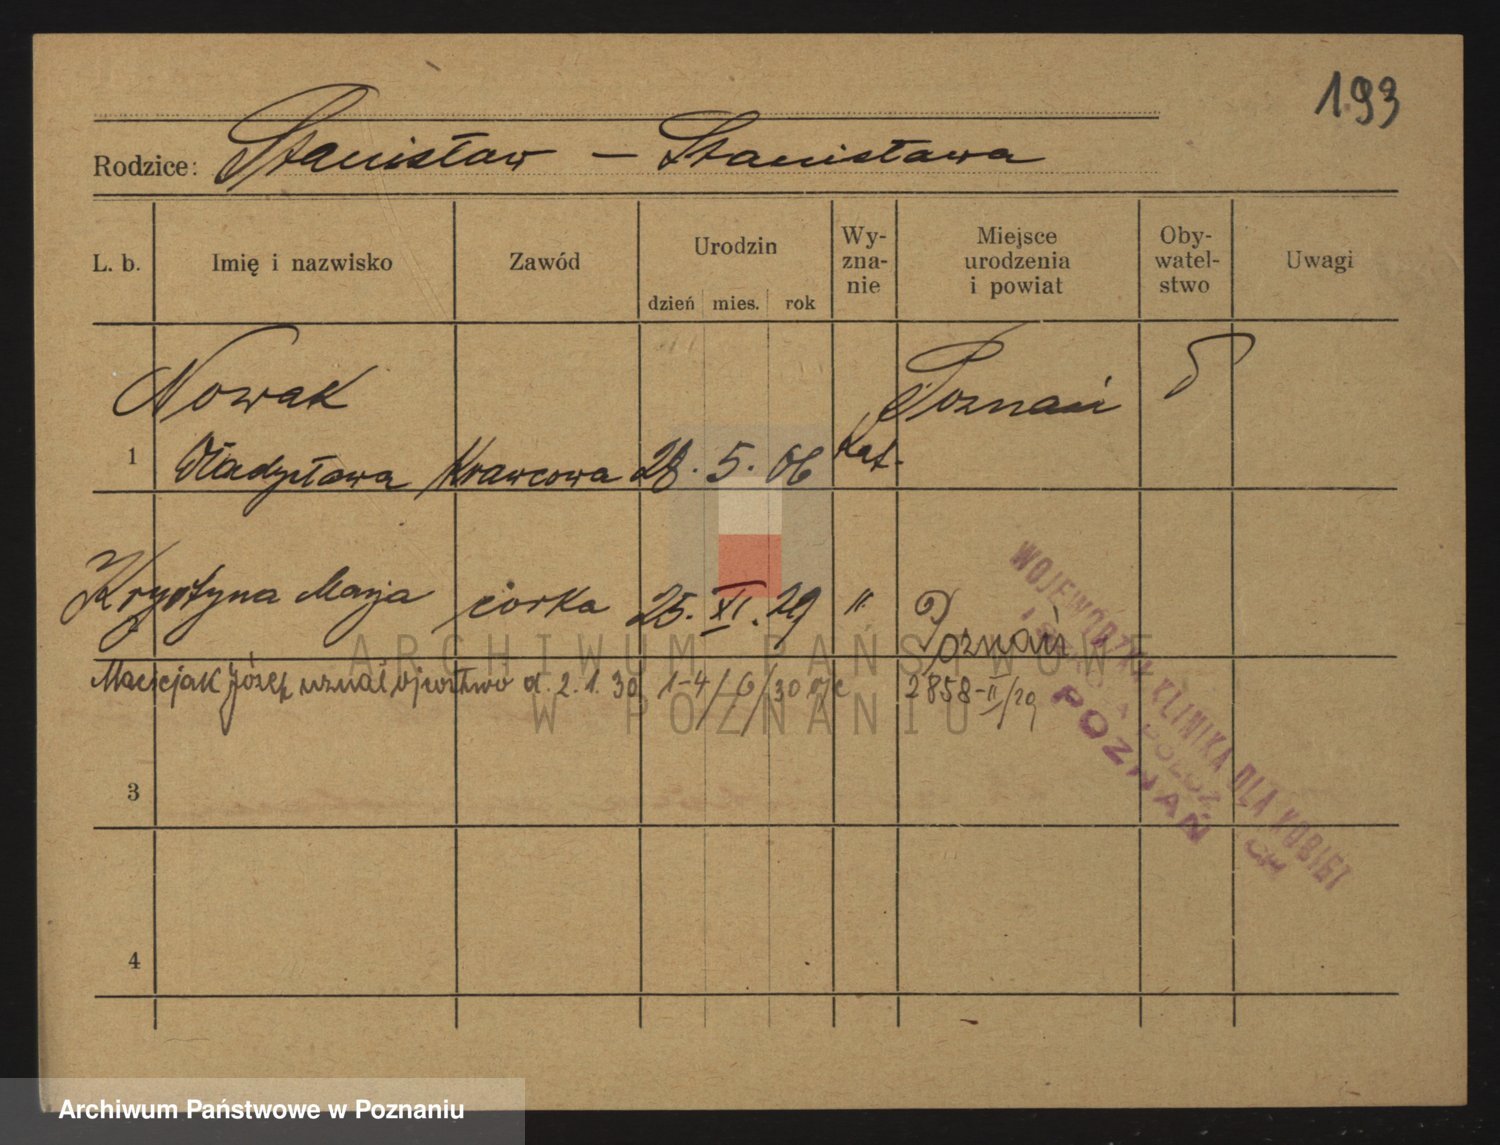 193
Rodzice: Stanisław – Stanisława
L. b. Imię i nazwisko Zawód Urodzin dzień mies. rok Wy-zna-nie Miejsce urodzenia i powiat Oby-watel-stwo Uwagi
Nowak Poznań
1 Władysława Krawcowa 28. 5. 06 kat.
Krystyna Marja córka 25. XI. 29 " Poznań
Maciejak Józef uznał ojcostwo d. 2.1.30 1-4/6/30 2858-II/29
3
4
WOJEWÓDZKA KLINIKA DLA KOBIET
POZNAŃ
ARCHIWUM PAŃSTWOWE
W POZNANIU
Archiwum Państwowe w Poznaniu